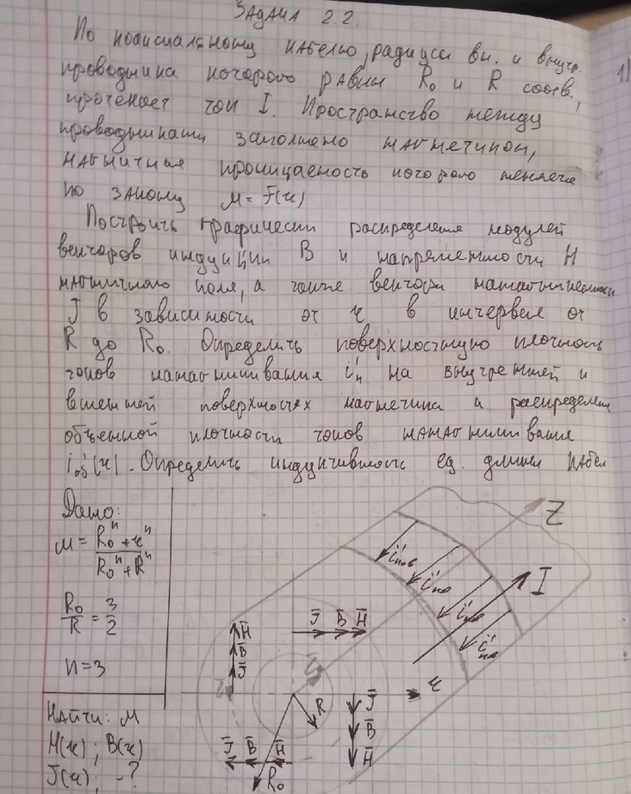 Задача 2.2.
По коаксиальному кабелю, радиусы вн. и внутр.
проводника которого равны R₀ и R соотв.,
протекает ток I. Пространство между
проводниками заполнено магнетиком,
магнитная проницаемость которого меняется
по закону μ = f(r)
Построить графически распределения модулей
векторов индукции B и напряженности H
магнитного поля, а также вектора намагниченности
J в зависимости от r в интервале от
R до R₀. Определить поверхностную плотность
токов намагничивания i'п на внутренней и
внешней поверхностях магнетика и распределение
объемной плотности токов намагничивания
i'об(r). Определить индуктивность ед. длины кабел
1)
Дано:
μ = (R₀ⁿ + rⁿ)/(R₀ⁿ + Rⁿ)
R₀/R = 3/2
n = 3
Найти: μ
H(r); B(r)
J(r); -?
Z
I
r
R
R₀
H̄
B̄
J̄
J̄ B̄ H̄
J̄
B̄
H̄
J̄ B̄ H̄